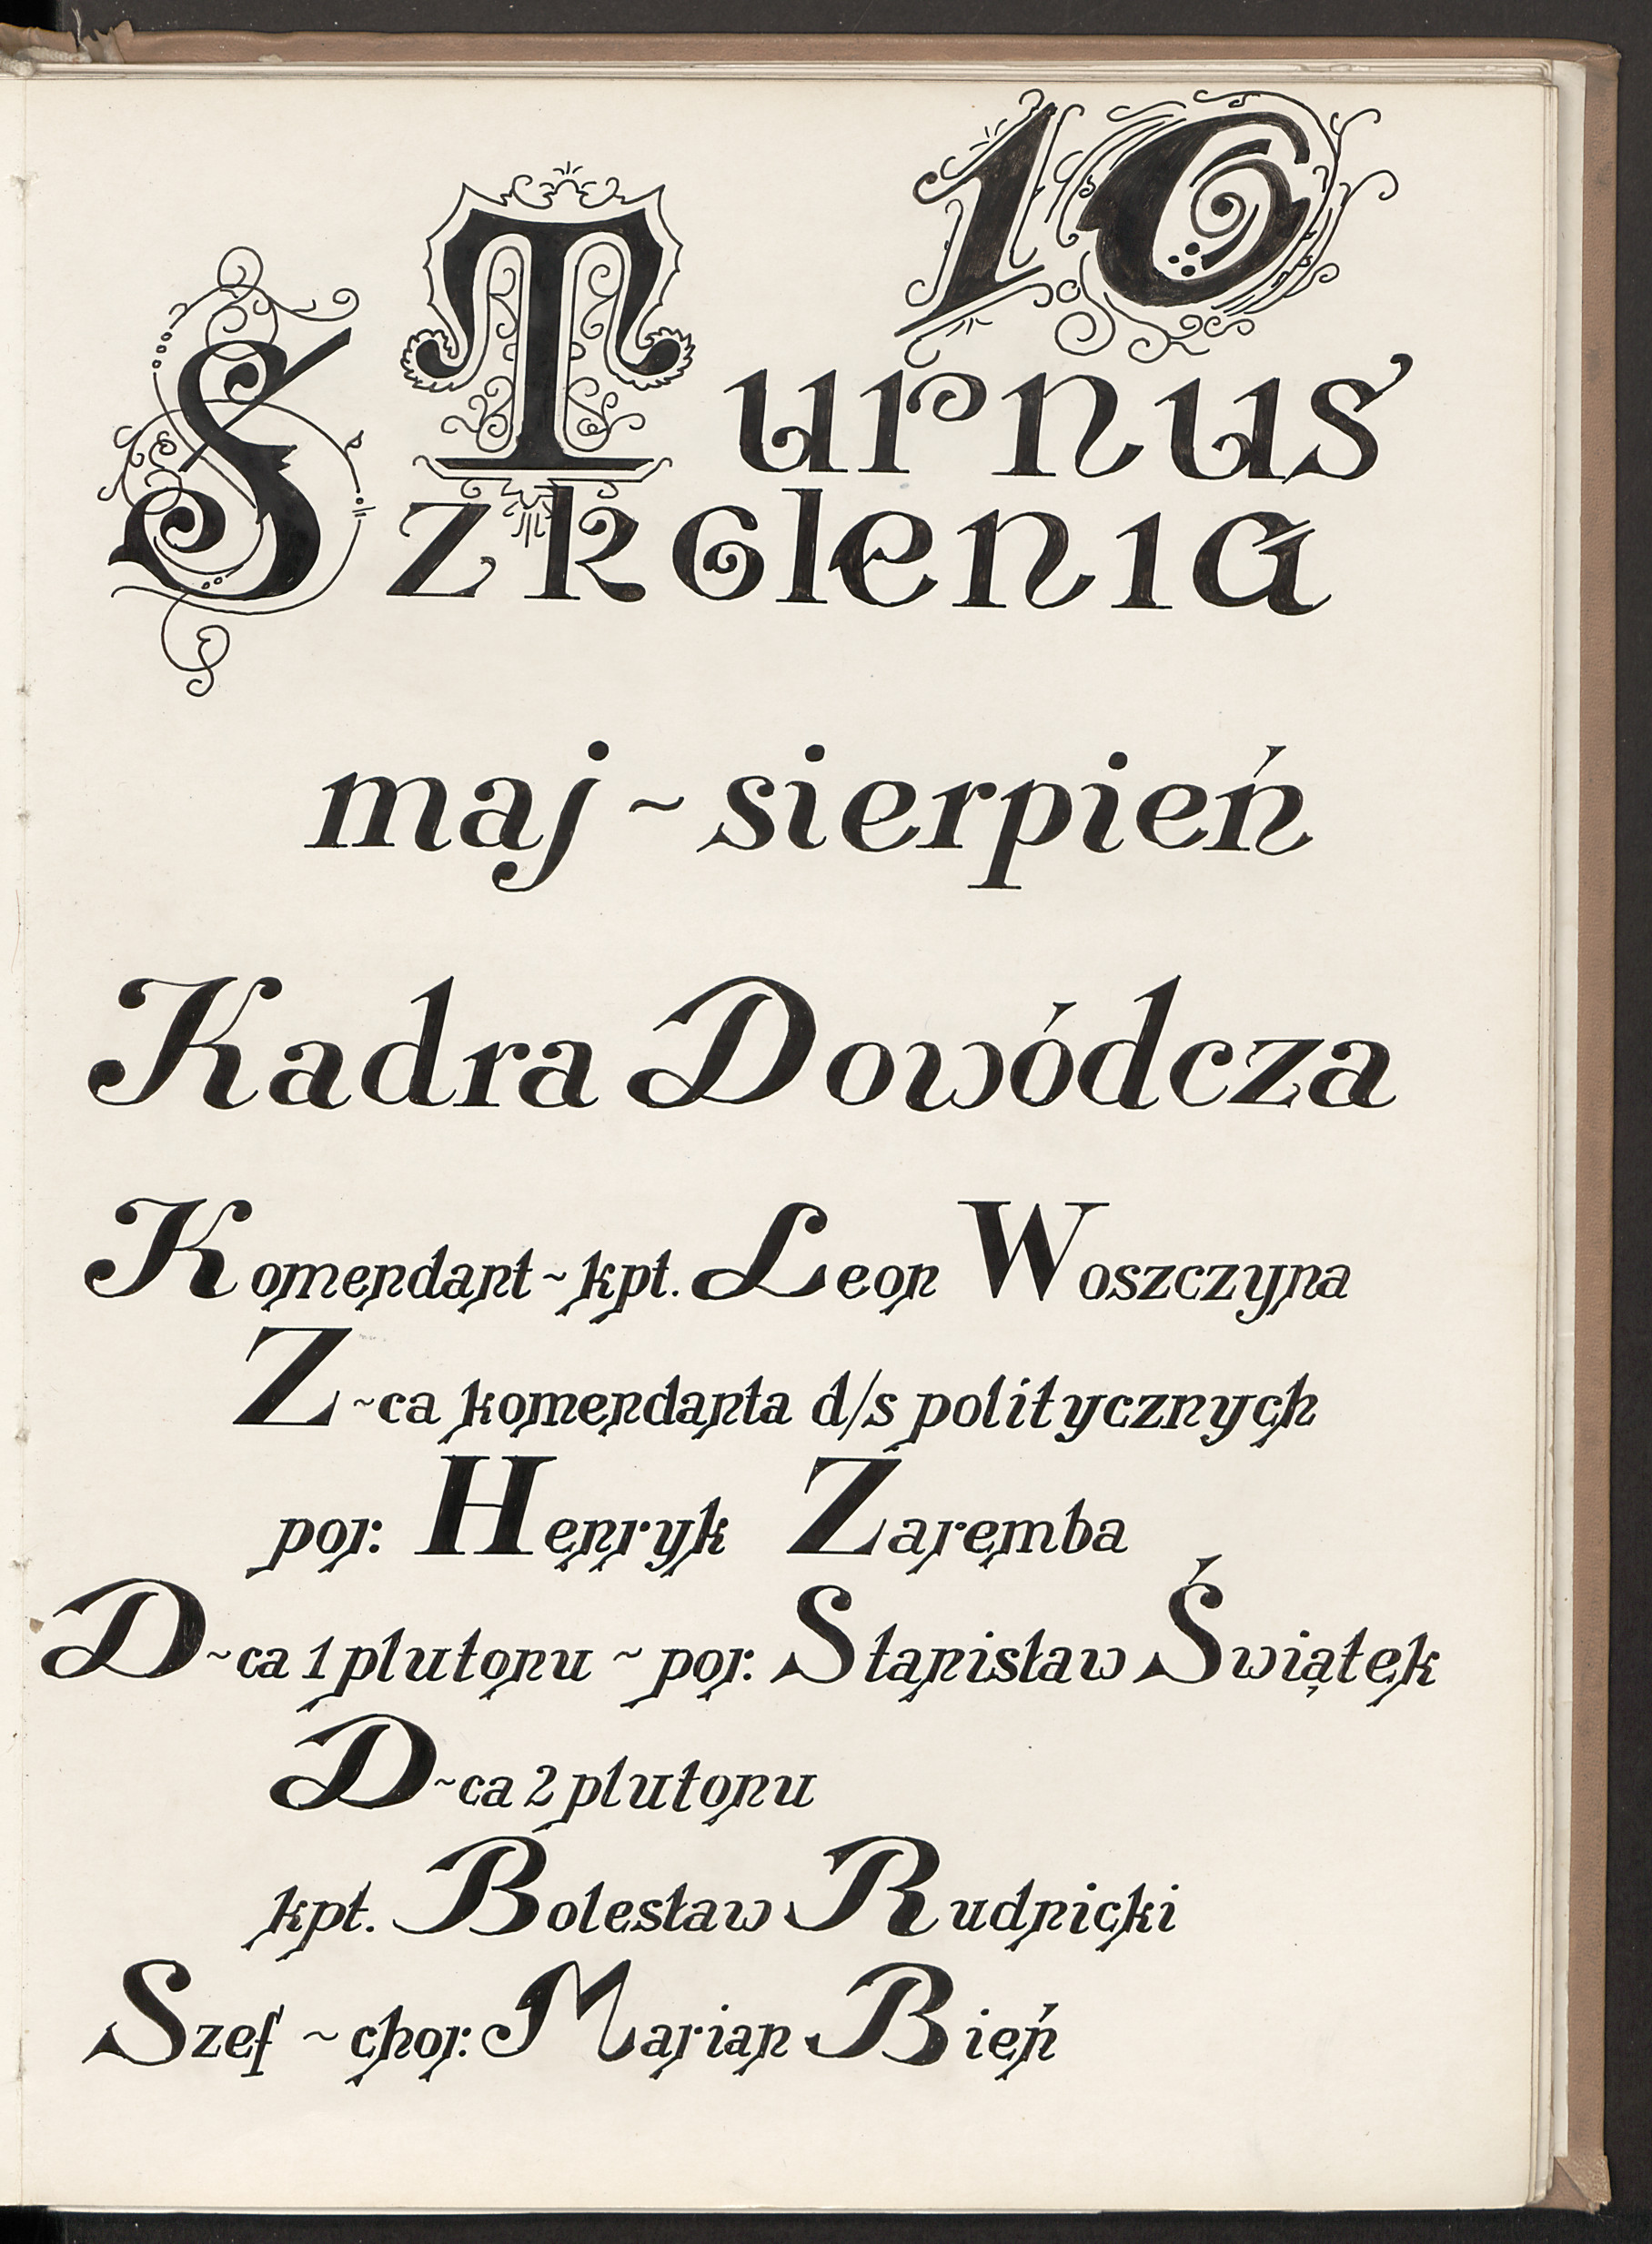 10
Turnus
Szkolenia
maj ~ sierpień
Kadra Dowódcza
Komendant ~ kpt. Leon Woszczyna
Z~ca komendanta d/s politycznych
por. Henryk Zaremba
D~ca 1 plutonu ~ por. Stanisław Świątek
D~ca 2 plutonu
kpt. Bolesław Rudnicki
Szef ~ chor. Marian Bień